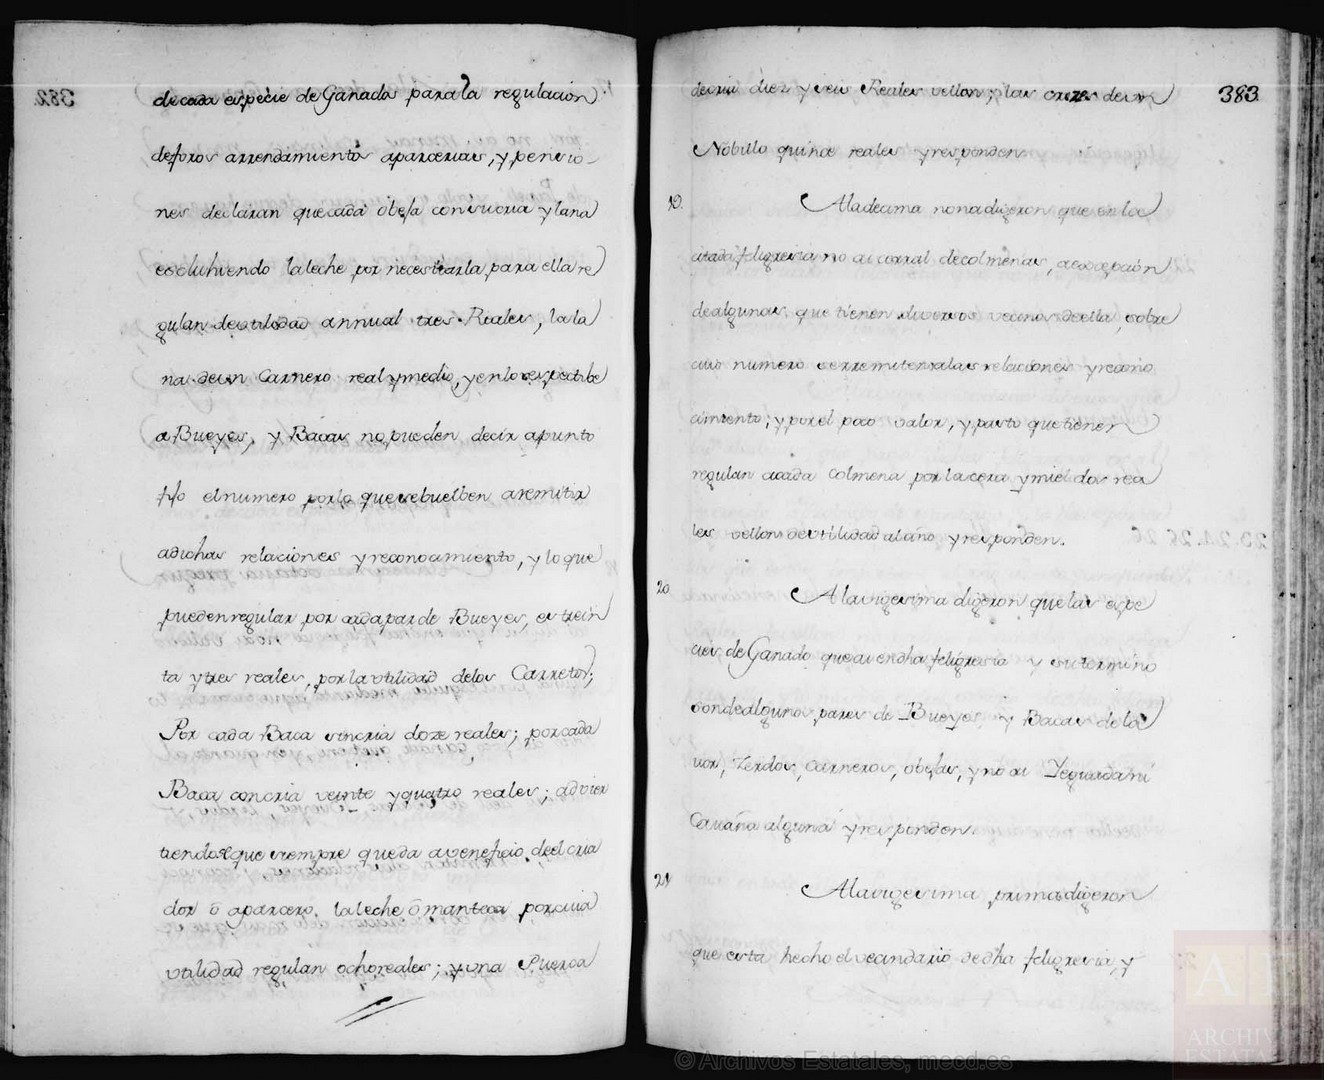 de cada espècie de Ganado para la regulacion
de foros arrendamientos aparcerias, y pensio-
nes declaran que cada obeja con su cria y lana
escluhiendo la leche por necesitarla para ella re
gulan de utilidad annual tres Reales, la la
na de un Carnero real y medio, y en lo respectibe
a Bueyes, y Bacas no pueden decir a punto
fijo el numero por lo que se buelben a remitir
a dichas relaciones y reconocimiento, y lo que
pueden regular por cada par de Bueyes, es trein
ta y tres reales, por la utilidad de los Carretos;
Por cada Baca sin cria doze reales; por cada
Baca con cria veinte y quatro reales; advier
tiendose que siempre queda a veneficio del cria
dor ò aparcero la leche ò manteca por cuia
utilidad regulan ocho reales; y una Puerca
383
de cria diez y seis Reales vellon; y las crias de un
Nobillo quince reales y responden
19. A la decima nona digeron que en la
citada feligresia no ai corral de colmenas, a escepcion
de algunas que tienen diversos vecinos de ella, sobre
cuio numero se remiten a las relaciones y recono
cimiento; y por el poco valor, y parto que tienen
regulan a cada colmena por la cera y miel dos rea
les vellon de utilidad al año y responden.
20 A la vigesima digeron que las espe
cies de Ganado que ai en dha feligresia y su termino
son de algunos pares de Bueyes y Bacas de la
vor, Zerdos, carneros, obejas, y no ai Yeguada ni
Cavaña alguna y responden
21 A la vigesima prima digeron
que esta hecho el vecindario de dha feligresia, y
© Archivos Estatales, mecd.es
AE
ARCHIV
ESTATA